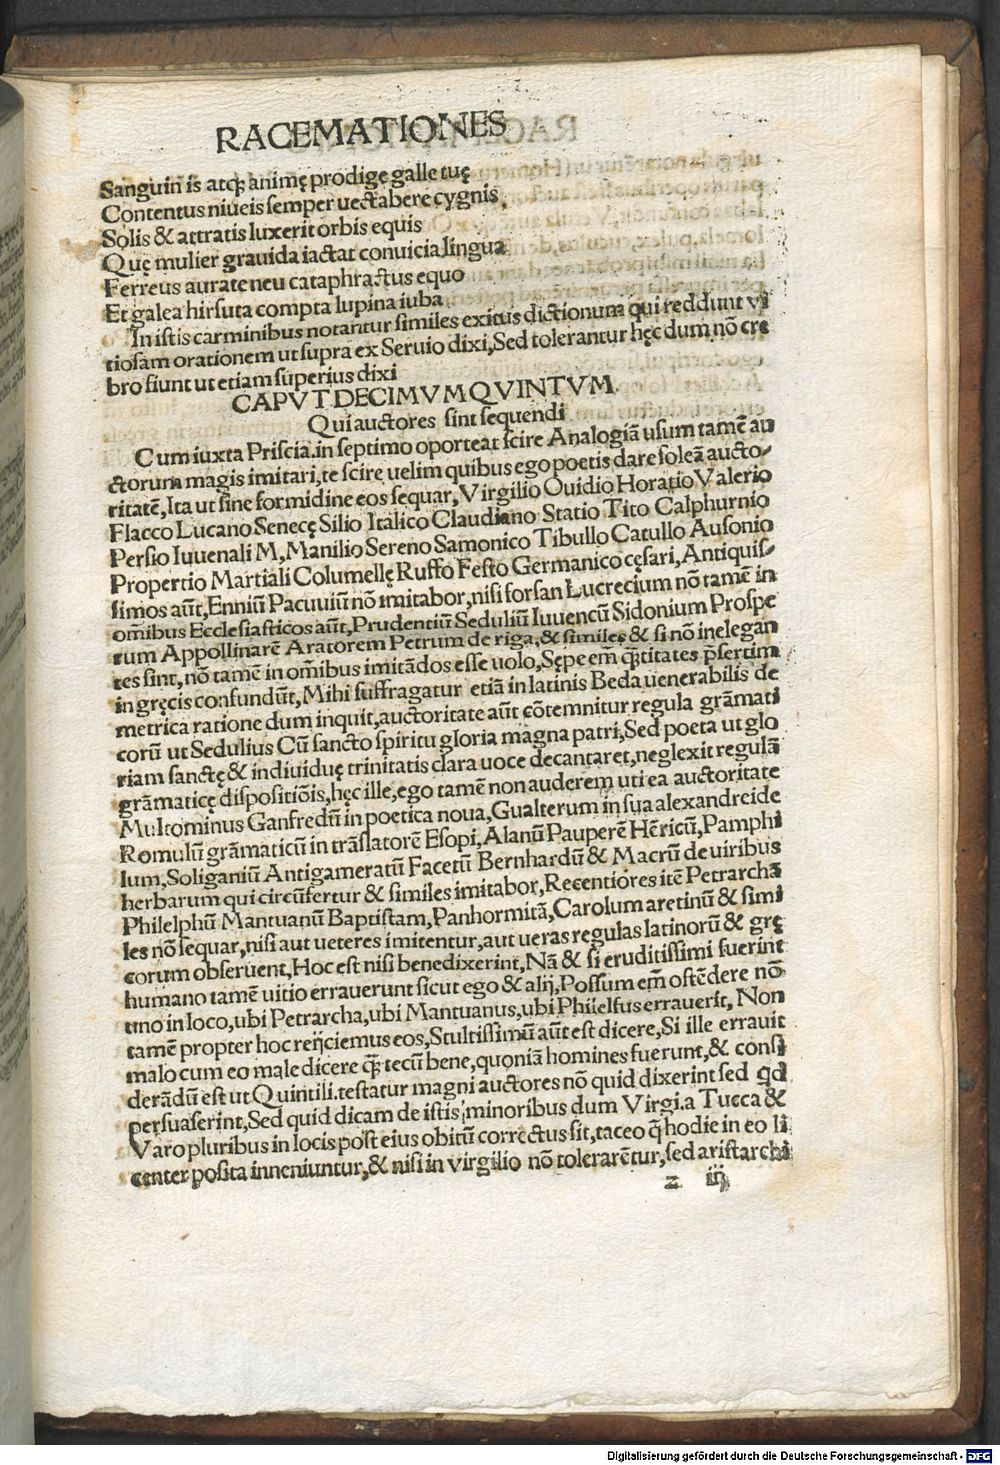 RACEMATIONES
Sanguin is atqꝫ animę prodigę galle tuę
Contentus niueis semper uectabere cygnis
Solis & attratis luxerit orbis equis
Quę mulier grauida iactat conuicia lingua
Ferreus aurateneu cataphractus equo
Et galea hirsuta compta lupina iuba
In istis carminibus notantur similes exitus dictionum qui reddunt vi
tiosam orationem ut supra ex Seruio dixi, Sed tolerantur hęc dum nõ cre
bro fiunt ut etiam superius dixi
CAPVT DECIMVM QVINTVM
Qui auctores sint sequendi
Cum iuxta Priscia.in septimo oporteat scire Analogiã usum tamẽ au
ctorum magis imitari, te scire uelim quibus ego poetis dare soleã aucto-
ritatẽ, Ita ut sine formidine eos sequar, Virgilio Ouidio Horatio Valerio
Flacco Lucano Senecę Silio Italico Claudiano Statio Tito Calphurnio
Persio Iuuenali M, Manilio Sereno Samonico Tibullo Catullo Ausonio
Propertio Martiali Columellę Ruffo Festo Germanico cęsari, Antiquis-
simos aũt, Enniũ Pacuuiũ nõ imitabor, nisi forsan Lucrecium nõ tamẽ in
om̃ibus Ecclesiasticos aũt, Prudentiũ Seduliũ Iuuencũ Sidonium Prospe
rum Appollinarẽ Aratorem Petrum de riga, & similes & si nõ inelegan
tes sint, nõ tamẽ in om̃ibus imitãdos esse uolo, Sępe em̃ q̃titates p̃sertim
in gręcis confundũt, Mihi suffragatur etiã in latinis Beda uenerabilis de
metrica ratione dum inquit, auctoritate aũt cõtemnitur regula grãmati
corũ ut Sedulius Cũ sancto spiritu gloria magna patri, Sed poeta ut glo
riam sanctę & indiuiduę trinitatis clara uoce decantaret, neglexit regulã
grãmaticę dispositiõis, hęc ille, ego tamẽ non auderem uti ea auctoritate
Multominus Ganfredũ in poetica noua, Gualterum in sua alexandreide
Romulũ grãmaticũ in trãslatorẽ Esopi, Alanũ Pauperẽ Hẽricũ, Pamphi
lum, Soliganiũ Antigameratũ Facetũ Bernhardũ & Macrũ de uiribus
herbarum qui circũfertur & similes imitabor, Recentiores itẽ Petrarchã
Philelphũ Mantuanũ Baptistam, Panhormitã, Carolum aretinũ & simi
les nõ sequar, nisi aut ueteres imitentur, aut ueras regulas latinorũ & grę
corum obseruent, Hoc est nisi benedixerint, Nã & si eruditissimi fuerint
humano tamẽ uitio errauerunt sicut ego & alij, Possum em̃ ostẽdere nõ
uno in loco, ubi Petrarcha, ubi Mantuanus, ubi Philelfus errauerit, Non
tamẽ propter hoc reijciemus eos, Stultissimũ aũt est dicere, Si ille errauit
malo cum eo male dicere q̃ tecũ bene, quoniã homines fuerunt, & consi
derãdũ est ut Quintili.testatur magni auctores nõ quid dixerint sed qd
persuaserint, Sed quid dicam de istis minoribus dum Virgi.a Tucca &
Varo pluribus in locis post eius obitũ correctus sit, taceo q̃ hodie in eo li
center posita inneniuntur, & nisi in virgilio nõ tolerarẽtur, sed aristarchi
z iij
Digitalisierung gefördert durch die Deutsche Forschungsgemeinschaft - DFG